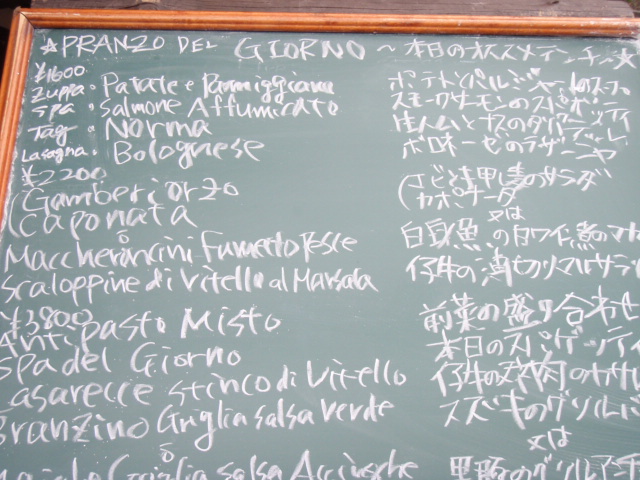 ☆PRANZO DEL GIORNO ~本日のオススメランチ☆
¥1600
Zuppa・Patate e Parmiggiana ポテトとパルミジャーノのスープ
Spa・Salmone Affumicato スモークサーモンのスパゲッティ
Tag・Norma
Lasagna・Bolognese ボロネーゼのラザニヤ
¥2200
(Gamberi orzo (エビと押し麦のサラダ
(Caponata (カポナータ
o 又は
Maccheroncini Fumetto Pesce 白身魚の白ワイン煮のマカ
Scaloppine di Vitello al Marsala 仔牛の薄切りマルサラ
¥3800
Antipasto Misto 前菜の盛り合わせ
Spa del Giorno 本日のスパゲッティ
Casarecce stinco di Vitello 仔牛の
Branzino Griglia salsa verde スズキのグリル
o 又は
Griglia salsa Acciughe のグリル